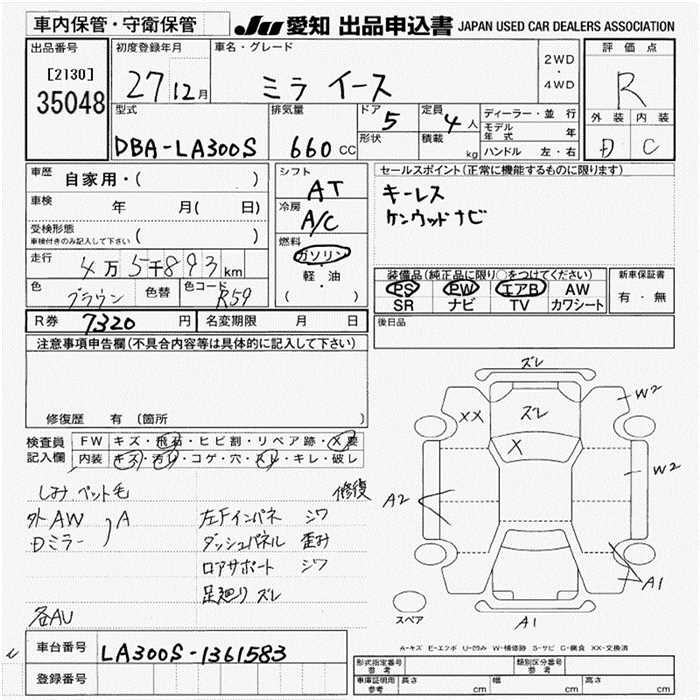 車内保管・守衛保管 JU 愛知 出品申込書 JAPAN USED CAR DEALERS ASSOCIATION
出品番号 [2130] 35048
初度登録年月 27 12月
車名・グレード ミラ イース
2WD・4WD
評価点 R
外装 内装 D C
型式 DBA-LA300S
排気量 660 CC
ドア 5
形状
定員 4 人
積載 kg
ディーラー・並行
モデル年式 年
ハンドル 左・右
車歴 自家用・( )
車検 年 月( 日)
受検形態 ( )
車検付きのみ記入して下さい
走行 4万5千893km
色 ブラウン 色替 色コード R59
シフト AT
冷房 A/C
燃料 ガソリン
軽・油
( ・ )
セールスポイント(正常に機能するものに限ります)
キーレス
ケンウッドナビ
装備品(純正品に限り○をつけてください)
PS PW エアB AW
SR ナビ TV カワシート
新車保証書
有・無
R券 7320 円 名変期限 月 日
後日品
注意事項申告欄(不具合内容等は具体的に記入して下さい)
修復歴 有 (箇所 )
検査員記入欄 FW キズ・飛石・ヒビ割・リペア跡・X要
内装 キズ・汚レ・コゲ・穴・スレ・キレ・破レ
しみ ペット毛 修復
外AW
Dミラー
A
左Fインパネ シワ
ダッシュパネル 歪み
ロアサポート シワ
足廻り ズレ
各AU
ズレ
XX ズレ W2
X
W2
A2
A1
スペア
A1
A-キズ E-エクボ U-凹み W-補修跡 S-サビ C-腐食 XX-交換済
車台番号 LA300S-1361583
登録番号
形式指定番号 参考 類別区分番号 参考
車庫証明用 参考 長さ cm 幅 cm 高さ cm